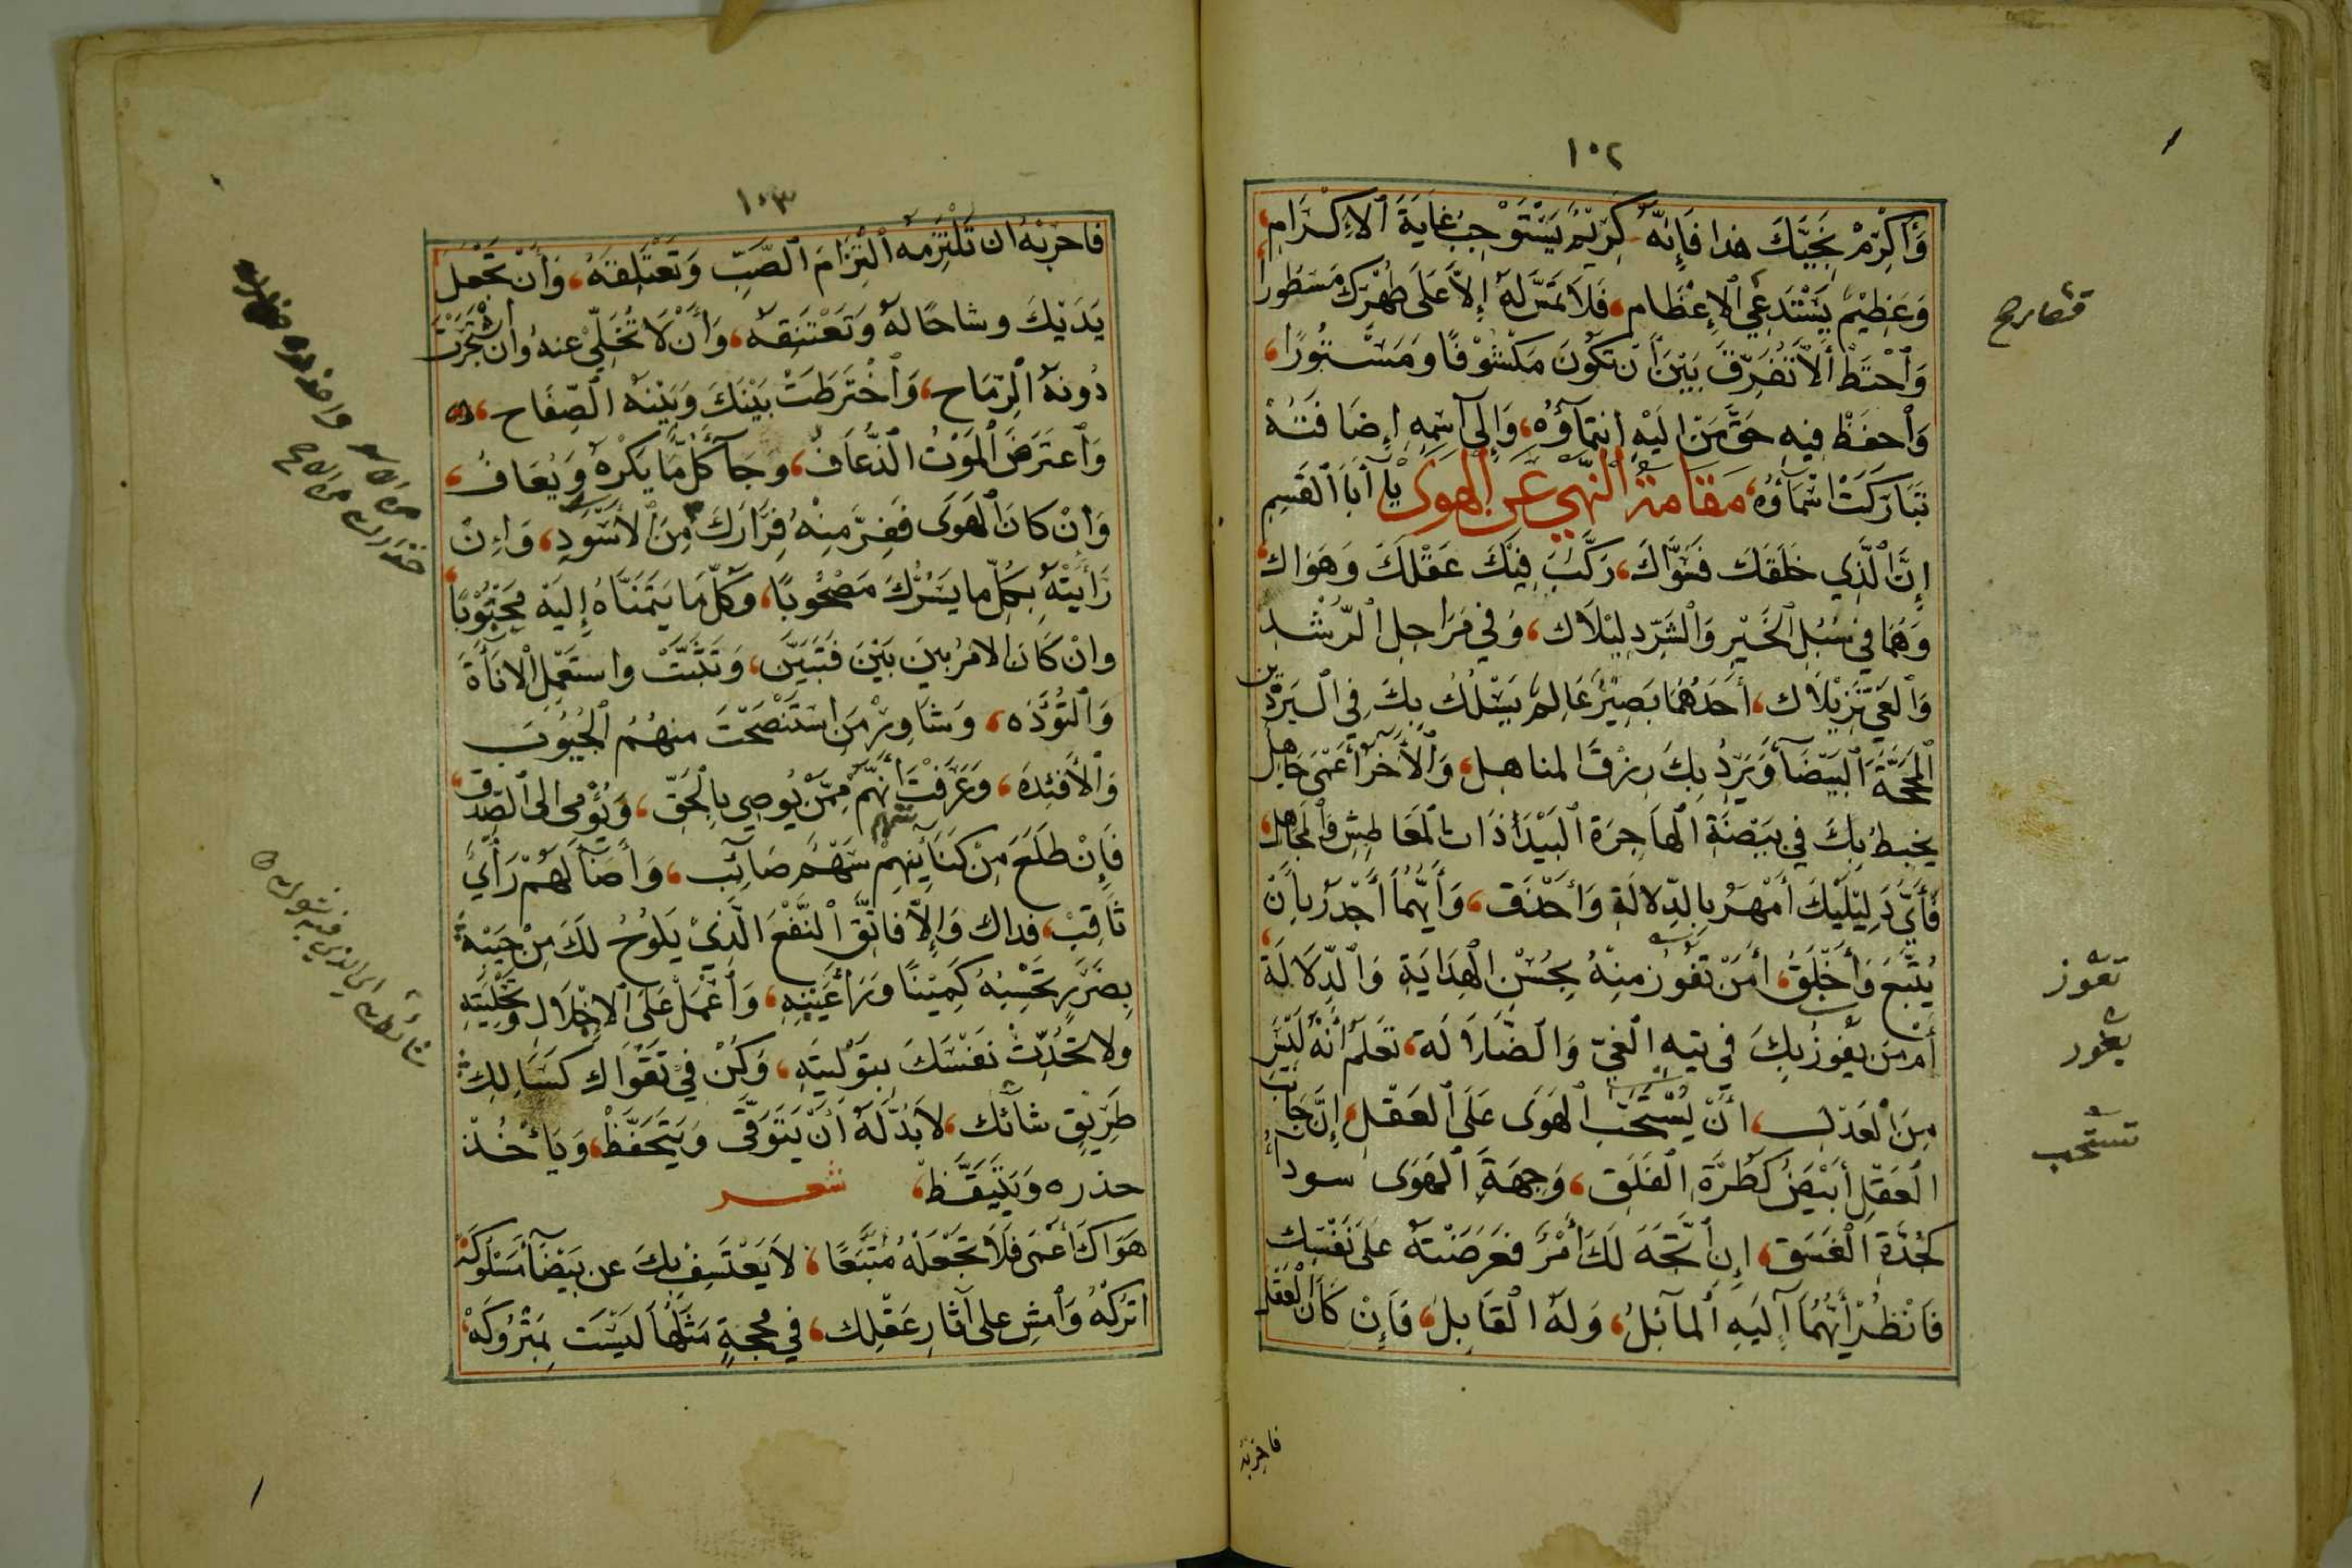 ١٠٢
وَأَكْرِمْ نَجِيَّكَ هذا فَإِنَّهُ كَرِيْمٌ يَسْتَوْجِبُ غايَةَ الْاِكْرَامِ،
وَعَظِيْمٌ يَسْتَدْعِي الْاِعْظَام، فَلَا تَمَسَّ لَهُ إِلَّا عَلَى طُهْرِكَ مَسْطُورا،
وَاحْتَطْ أَلَّا تُفَرِّقَ بَيْنَ أن تَكُونَ مَكْشُوْفًا وَمَسْتُورًا،
وَاحفَظْ فِيهِ حَقَّ مَن اِلَيْهِ انتِمَاؤُهُ، وَاِلَى اسْمِهِ اِضَافَتُهُ
تَبَارَكَتْ اَسْمَاؤُه، مَقَامَةُ النَّهْيِ عَنِ الْهَوَى يَا أَبَا القسِمِ
إِنَّ الَّذِي خَلَقَكَ فَسَوَّاكَ، رَكَّبَ فِيْكَ عَقْلَكَ وَهَوَاكَ،
وَهُمَا فِي سُبُلِ الْخَيْرِ وَالشَّرِّ دليْلَاكَ، وَفِي مَرَاحِلِ الرُّشْدِ
وَالْغَيِّ نَزِيْلَاك، أَحَدُهُمَا بَصِيْرٌ عَالِمٌ يَسْلُكُ بِكَ فِي السَيْرِ
الْمَحَجَّةَ الْبَيْضَآءَ وَيَرِدُ بِكَ زرْقَ المناهل، وَالْآخَرُ أَعْمَى جَاهِلٌ
يخبطُ بِكَ فِي بَيْضَةِ الْهَاجِرَةِ الْبَيْدَاءَ ذَاتَ الْمَعَاطِشِ وَالْمَجَاهِل،
فَأَيُّ دَلِيْلَيْكَ أَمْهَرُ بِالدِّلالَةِ وَأَحْذَقُ، وَأَيُّهُمَا أَجْدَرُ بِأَنْ
يُتَّبَعَ وَأَخْلَقُ، أمَنْ تَفُوزُ مِنْهُ بِحُسْنِ الْهِدَايَةِ وَالدِّلَالَةِ،
أَمْ مَن يَفُوزُ بِكَ فِي تِيهِ الْغَيِّ وَالضَّلَالَة، تَعَلَّمْ أَنَّهُ لَيْسَ
مِنَ الْعَدْلِ، أَنْ يُسْتَحَبَّ الْهَوَى عَلَى الْعَقْلِ، إِنَّ جَانِبَ
الْعَقْلِ أَبْيَضُ كَطُرَّةِ الْفَلَقِ، وَجِهَةَ الْهَوَى سوداءُ
كَجُدَّةِ الْغَسَق، اِنِ اتَّجَهَ لَكَ أَمْرٌ فعَرَضْتَهُ عَلَى نَفْسِكَ
فَانْظُرْ أَيُّهُمَا اِلَيْهِ الْمائِلُ، وَلَهُ الْقَابِلُ، فَاِنْ كَانَ الْعَقْلَ
فاحربه
تفوز
يغور
تستحب
١٠٣
فاحربهُ ان تَلْتَزِمَهُ الْتِزَامَ الصَّبِّ وَتَعْتَلِقَهُ، وَأَنْ تَجْعَلَ
يَدَيْكَ وِشاحًا لَهُ وَتَعْتَنِقَهُ، وَأَنْ لَا تُخَلِّيَ عنهُ وَاِن اشْتَجَرَتْ
دُونَهُ الرِّمَاح، وَاخْتَرَطَتْ بَيْنَكَ وَبَيْنَهُ الصِّفَاح،
وَاعتَرَضَ الْمَوْتُ الذُّعَافُ، وَجَآءَ كُلُّ مَا يَكْرَهُ وَيُعَافُ،
وَاِنْ كَانَ الْهَوَى فَفِرَّ مِنْهُ فِرَارَكَ مِنَ الْأَسَدِ، وَاِنْ
رَأَيْتَهُ بِكُلِّ ما يَسُرُّكَ مَصْحُوبًا، وَكُلُّ مَا يَتَمَنَّاهُ إِلَيْهِ مَجْنُوْبًا،
وَاِنْ كَانَ الامرُ بَينَ بَيْنَ فَتَبَيَّن، وَتَثَبَّتْ واستَعْمِل الْاَنَاةَ
وَالتُّؤَدَه، وَشَاوِرْ مَنِ اسْتَنْصَحْتَ مِنهُمُ الْجُيُوبَ
وَالْأَفئِدَه، وَعَرَفْتَ أَنَّهُمْ مِمَّنْ يُوصِي بِالْحَقِّ، وَيُؤْمِى الى الصِّدْقِ،
فَإِنْ طَلَعَ مِنْ كَنَائِنِهِمْ سَهْمٌ صَائِب، وَأَضَاءَ لَهُمْ رَأْيٌ
ثَاقِبْ، فذاك وَإِلَّا فاتَّقِ النَّفْعَ الَّذِيْ يَلُوحُ لَكَ مِنْ جَيْبِهِ
بِضَرَرٍ تَحْسِبُهُ كَمِيْنًا وَرَاءَ غَيْبِهِ، وَاعْمَلْ عَلَى الْاِخْلَالِ وَتَخْلِيَتِهِ
ولا تُحَدِّثْ نَفْسَكَ بِتَوْلِيَتِهِ، وَكُنْ فِيْ تَقْوَاكَ كَسَالِكِ
طَرِيْقٍ شائك، لَا بُدَّ لَهُ أَنْ يَتَوَقَّى وَيَتَحَفَّظْ، وَيَأْخُذ
حذره وَيَتَيَقَّظْ، شعر
هَوَاكَ أَعْمَى فَلَا تَجْعَلْهُ مُتَّبَعًا، لَا يَعْتَسِفْ بِكَ عن بَيْضَآءَ مَسْلُوكَه
اترُكْهُ وَامْشِ على آثارِ عَقْلِك، فِي مَحَجةٍ مِثْلُهَا لَيْسَت بِمَتْرُوكَه